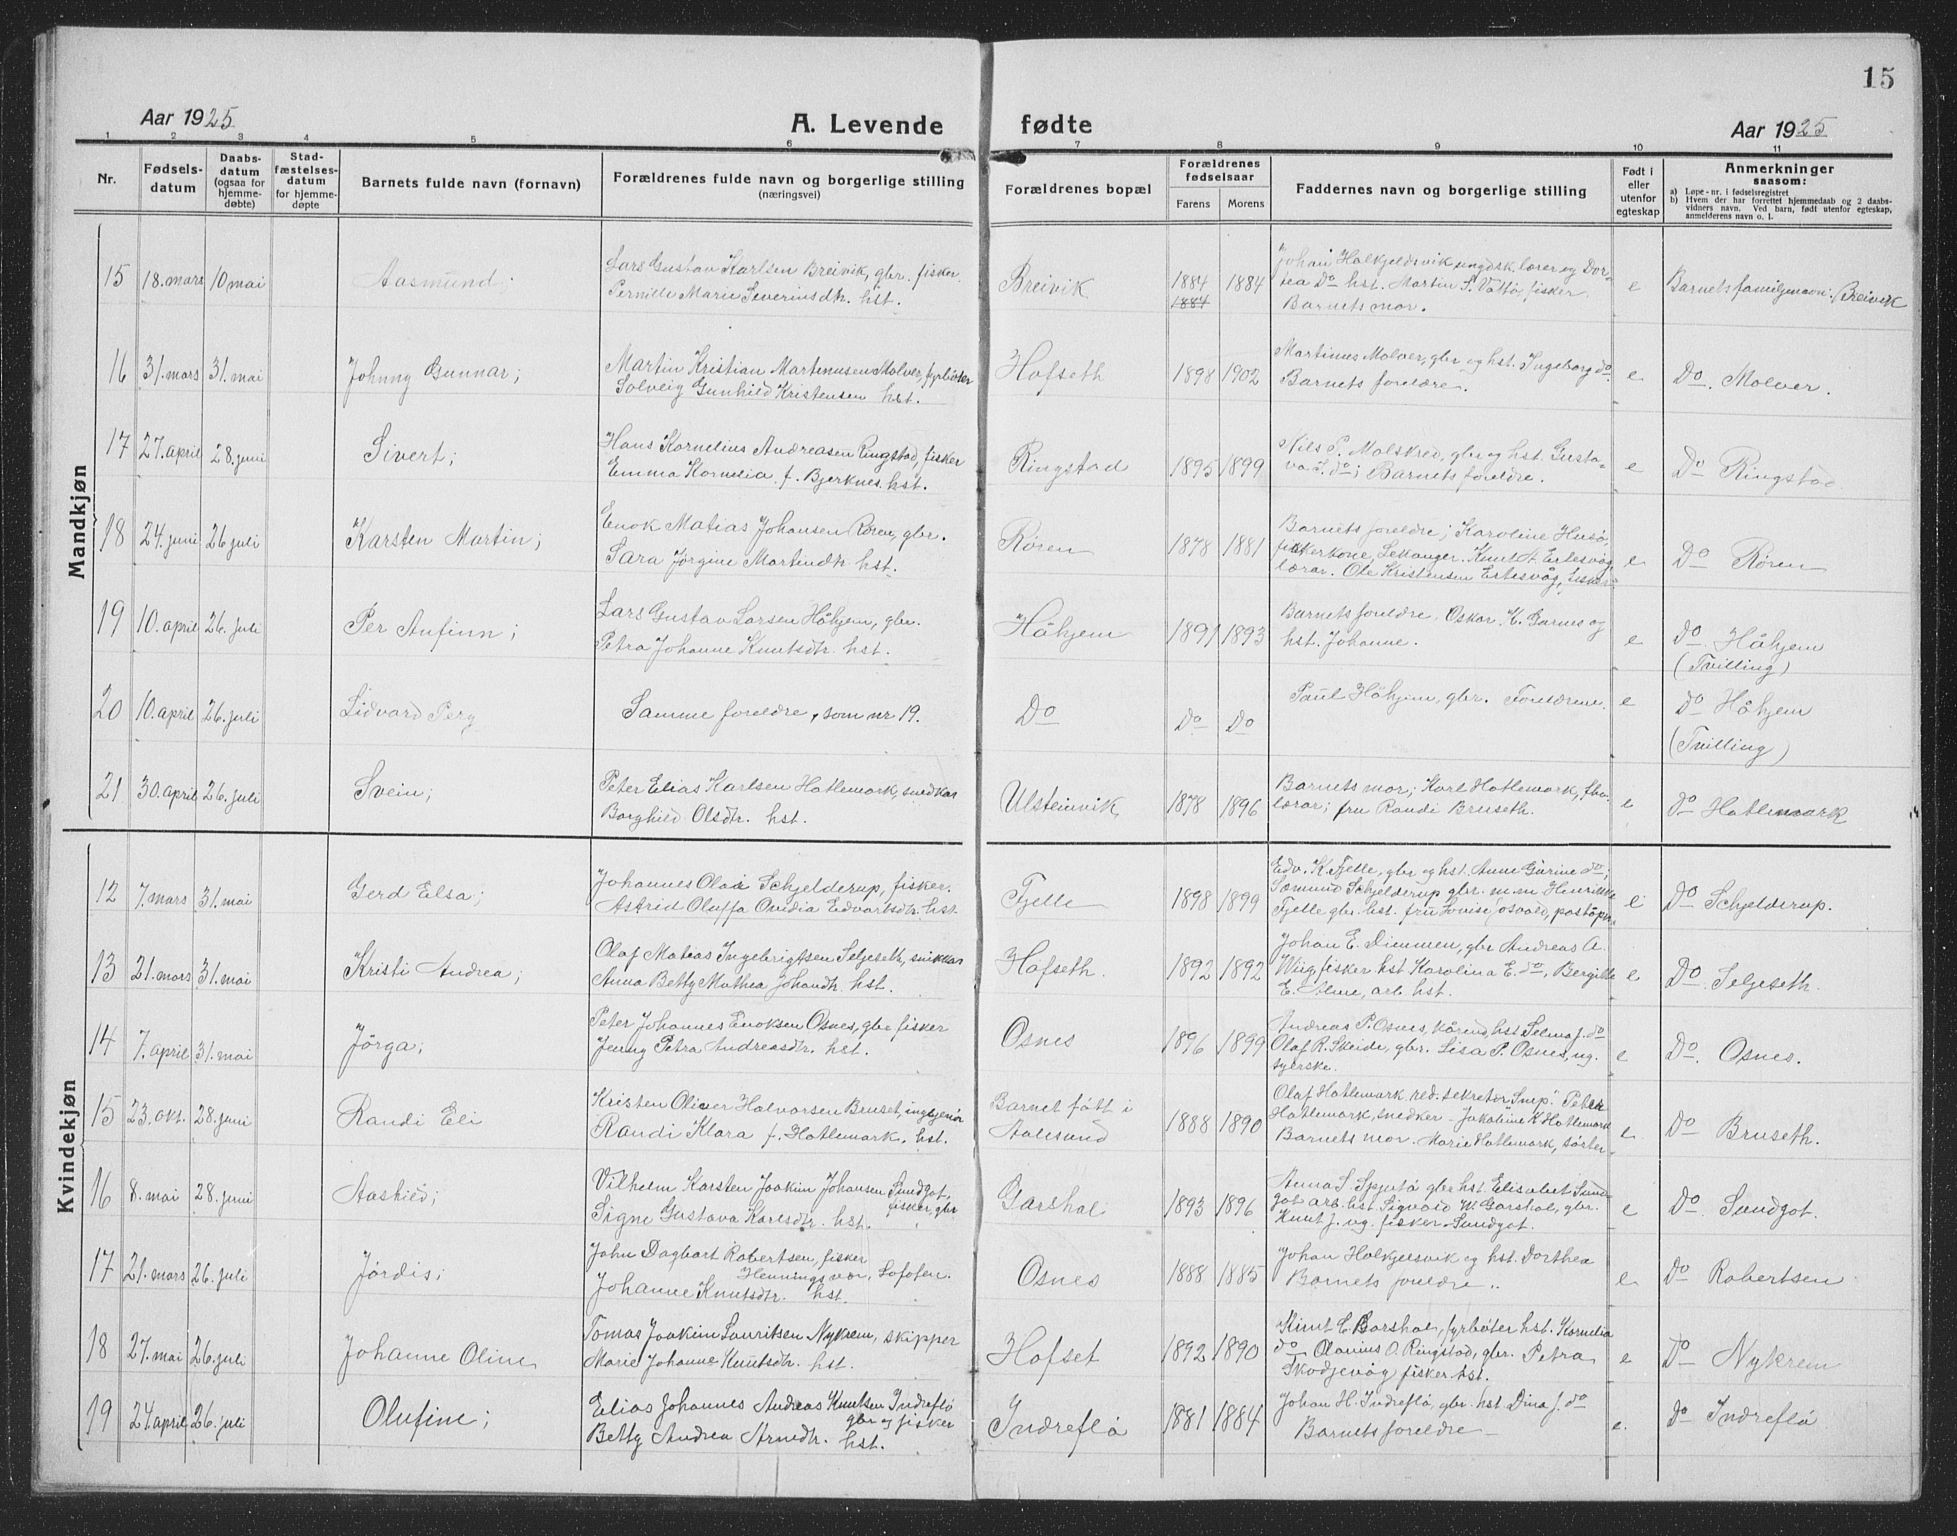 15
Aar 1925
A. Levende fødte
Aar 1925
1 2 3 4 5 6 7 8 9 10 11
Nr.
Fødsels-
datum
Daabs-
datum
(ogsaa for
hjemme-
døbte)
Stad-
fæstelses-
datum
for hjemme-
døpte
Barnets fulde navn (fornavn)
Forældrenes fulde navn og borgerlige stilling
(næringsvei)
Forældrenes bopæl
Forældrenes
fødselsaar
Farens Morens
Faddernes navn og borgerlige stilling
Født i
eller
utenfor
egteskap
Anmerkninger
saasom:
a) Løpe-nr. i fødselsregistret
b) Hvem der har forrettet hjemmedaab og 2 daabs-
vidners navn. Ved barn, født utenfor egteskap,
anmelderens navn o. l.
Mandkjøn
15 18. mars 10 mai Aasmund;
Lars Gustav Karlsen Breivik, gbr. fisker.
Pernille Marie Severinsdtr. hst.
Breivik 1884 1884
1884
Johan Halkjeldsvik ungdsk. lærer og Dor-
tea Do hst. Martin S. Vattø fisker
Barnets mor.
e Barnets familjenavn: Breivik
16 31. mars 31. mai Johnny Gunnar;
Martin Kristian Martinusen Molver, fyrbøter
Solveig Gunhild Kristensen hst.
Hofseth 1898 1902
Martinus Molver, gbr og hst. Ingeborg do.
Barnets foreldre.
e Do. Molver.
17 27. april 28. juni Sivert;
Hans Kornelius Andreasen Ringstad, fisker
Emma Kornelia f. Bjerknes. hst.
Ringstad 1895 1899
Nils P. Malskred, gbr og hst. Gusta-
va L. do; Barnets foreldre.
e Do Ringstad
18 24. juni 26 juli Karsten Martin;
Enok Matias Johansen Røren, gbr.
Sara Jørgine Martindtr. hst.
Røren 1878 1881
Barnets foreldre; Karoline Husø,
fiskerkone, Lekanger. Knut A Eltesvåg,
lærar. Ole Kristensen Eltesvåg, fisker
e Do Røren
19 10. april 26. juli Per Anfinn;
Lars Gustav Larsen Håhjem, gbr.
Petra Johanne Knutsdtr. hst.
Håhjem 1891 1893
Barnets foreldre, Oskar K. Garnes og
hst. Johanne.
e Do. Håhjem
(Tvilling)
20 10. april 26. juli Lidvard Perg
Samme foreldre, som nr 19.
Do Do Do
Paul Håhjem, gbr. Foreldrene.
e Do Håhjem
(Tvilling)
21 30. april 26. juli Svein;
Peter Elias Karlsen Hatlemark, snedkar
Borghild Olsdtr. hst.
Ulsteinvik 1878 1896
Barnets mor; Karl Hatlemark,
lærar; fru Randi Bruseth.
e Do Hatlemark
Kvindekjøn
12 7. mars 31. mai Gerd Elsa;
Johannes Olai Schjelderup, fisker.
Astrid Oluffa Ovidia Edvartsdtr. hst.
Fjelle 1898 1899
Edv. K. Fjelle, gbr og hst Anne Gurine do;
Sæmund Schjelderup gbr. m.m Henrikke
Fjelle gbr. hst. fru Lovise
e Do Schjelderup.
13 21. mars 31. mai Kristi Andrea;
Olaf Matias Ingebrigtsen Seljeseth, snikkar
Anna Betty Mathea Johandtr. hst.
Hofseth. 1892 1892
Johan E. Dimmen, gbr Andreas A.
Wiig fisker hst Karolina E. do, Bergitte
E. Alme, arb. hst.
e Do. Seljeseth.
14 7. april 31. mai Jørga;
Peter Johannes Enoksen Osnes, gbr fisker
Jenny Petra Andreasdtr. hst.
Osnes 1896 1899
Andreas P. Osnes, kårmd, hst Selma J. do
Olaf R. Skeide, gbr. Lisa P. Osnes, ug.
syerske.
e Do. Osnes.
15 23. okt. 28. juni Randi Eli
Kristen Oliver Halvorsen Bruset, ingsjeniør
Randi Klara f. Hatlemark. hst.
Barnet født i
Aalesund
1888 1890
Olaf Hatlemark red. sekretær Smp. Peter
Hatlemark, snedker. Jakobine K Hatlemark
Barnets mor. Marie Hatlemark,
e Do Bruseth.
16 8. mai 28. juni Aashild;
Vilhelm Karsten Joakim Johansen Sundgot,
fisker, gbr
Signe Gustava Karlsdtr. hst.
Garshol 1893 1896
Anna S. Spjutø gbr hst Elisabet Sund-
got arb. hst. Sigvald W. Garshol, gbr.
Knut J. ug. fisker Sundgot.
e Do Sundgot.
17 21. mars 26. juli Jørdis;
John Dagbart Robertsen, fisker
Henningsvær, Lofoten.
Johanne Knutsdtr. hst.
Osnes 1888 1885
Johan Halkjelsvik og hst. Dorthea
Barnets foreldre..
e Do Robertsen
18 27. mai 26. juli Johanne Oline
Tomas Joakim Lauritsen Nykrem, skipper
Marie Johanne Knutsdtr. hst.
Hofset 1892 1890
Knut E. Garshol, fyrbøter hst. Kornelia
do Olanius O. Ringstad, gbr. Petra
Skodjevåg fisker hst.
e Do Nykrem
19 24. april 26. juli Olufine;
Elias Johannes Andreas Knutsen Indreflø
gbr og fisker
Betty Andrea Arndtr. hst.
Indreflø 1881 1884
Johan H. Indreflø, gbr. hst Dina J. do
Barnets foreldre
e. Do Indreflø